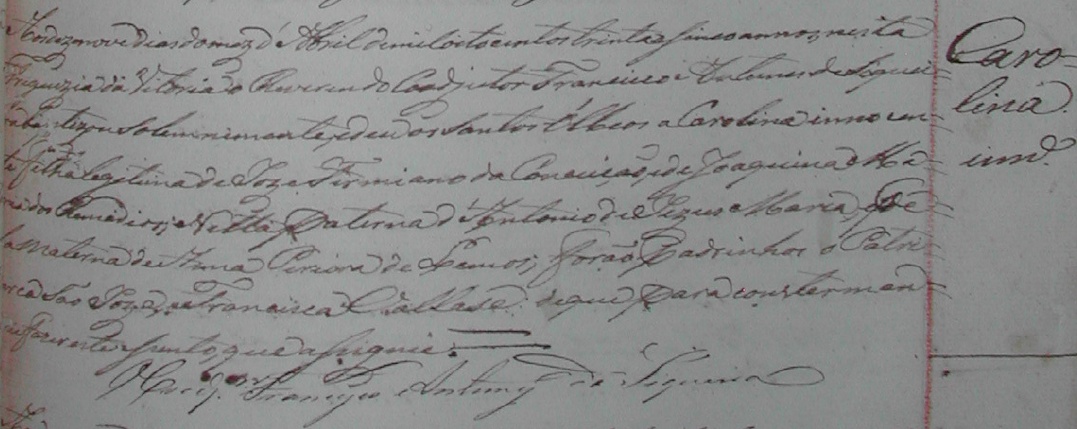 Aos dez nove dias do mez d'Abril de mil oito centos trinta e sinco annos, nesta
Freguezia da Vitoria o Reverendo Coadjutor Francisco Antonio de Siquei=
ra baptizou solemnemente, e deu os Santos Olleos a Carolina innocen=
te filha legitima de Joze Firmiano da Conceição, e de Joaquina Ma=
ria dos Remedios, e Netta Paterna d'Antonio de Jezus Maria, e pe=
la Materna de Anna Pereira de Lemos; forão Padrinhos o Patri=
arca São Joze, e Francisca de que para constar man=
dei fazer este asento, que asignei.
O Coadj.or Francisco Antonio de Siqueira
Caro=
lina.
inn.e